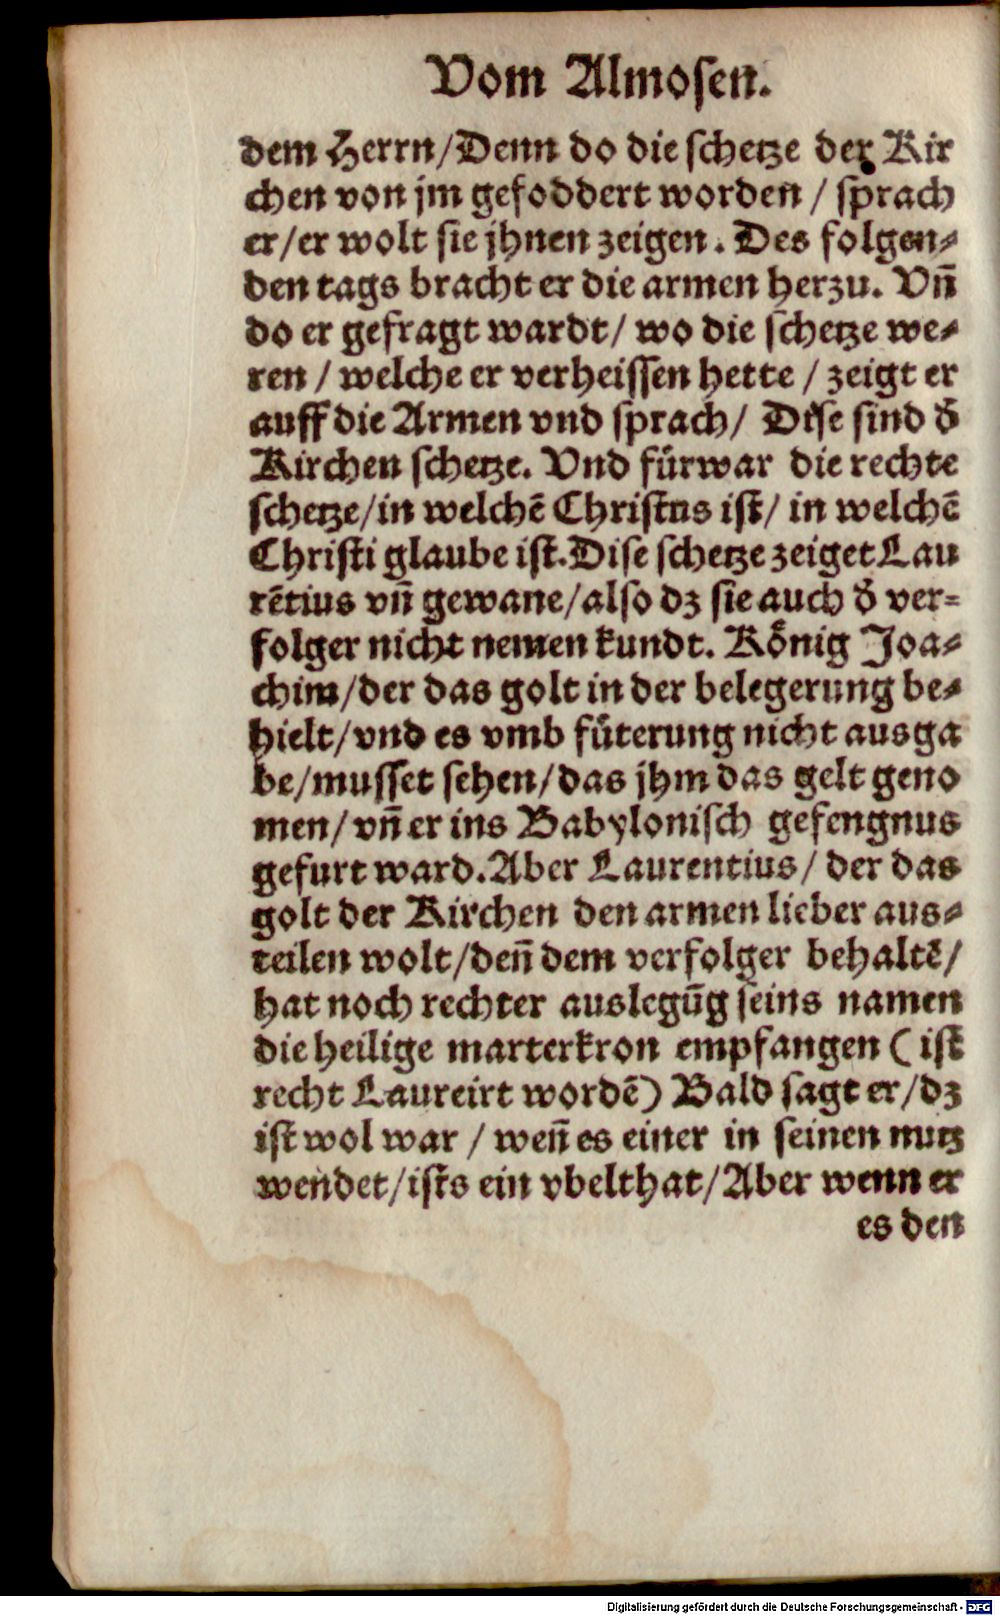 Vom Almosen.
dem Herrn/Denn do die schetze der Kir
chen von jm gefoddert worden / sprach
er/er wolt sie jhnen zeigen. Des folgen⸗
den tags bracht er die armen herzu. Vñ
do er gefragt wardt/ wo die schetze we⸗
ren / welche er verheissen hette / zeigt er
auff die Armen vnd sprach/ Dise sind d̕
Kirchen schetze. Vnd fürwar die rechte
schetze/in welchẽ Christus ist/ in welchẽ
Christi glaube ist. Dise schetze zeiget Lau
rẽtius vñ gewane/also dz sie auch d̕ ver⸗
folger nicht nemen kundt. Kőnig Joa⸗
chim/der das golt in der belegerung be⸗
hielt/vnd es vmb fůterung nicht ausga
be/musset sehen/das jhm das gelt geno
men/ vñ er ins Babylonisch gefengnus
gefurt ward. Aber Laurentius/ der das
golt der Kirchen den armen lieber aus⸗
teilen wolt/deñ dem verfolger behaltẽ/
hat noch rechter auslegũg seins namen
die heilige marterkron empfangen ( ist
recht Laureirt wordẽ) Bald sagt er/dz
ist wol war / weñ es einer in seinen nutz
wendet/ists ein vbelthat/Aber wenn er
es den
Digitalisierung gefördert durch die Deutsche Forschungsgemeinschaft - DFG